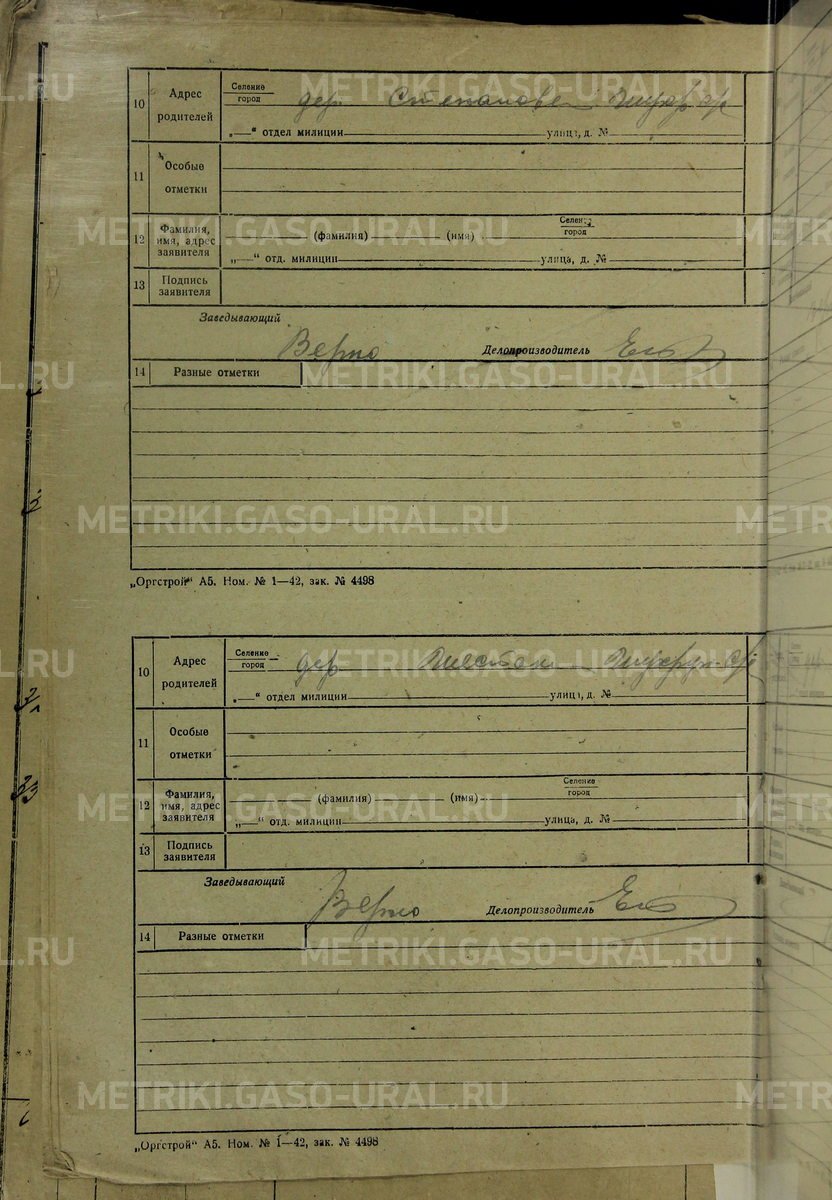 10 Адрес родителей Селение город дер.
„—“ отдел милиции улица, д. №
11 Особые отметки
12 Фамилия, имя, адрес заявителя (фамилия) (имя) Селение город
„—“ отд. милиции улица, д. №
13 Подпись заявителя
Заведывающий
Верно Делопроизводитель
14 Разные отметки
„Оргстрой“ А5. Ном. № 1—42, зак. № 4498
10 Адрес родителей Селение город дер
„—“ отдел милиции улица, д. №
11 Особые отметки
12 Фамилия, имя, адрес заявителя (фамилия) (имя) Селение город
„—“ отд. милиции улица, д. №
13 Подпись заявителя
Заведывающий
Верно Делопроизводитель
14 Разные отметки
„Оргстрой“ А5. Ном. № 1—42, зак. № 4498
METRIKI.GASO-URAL.RU